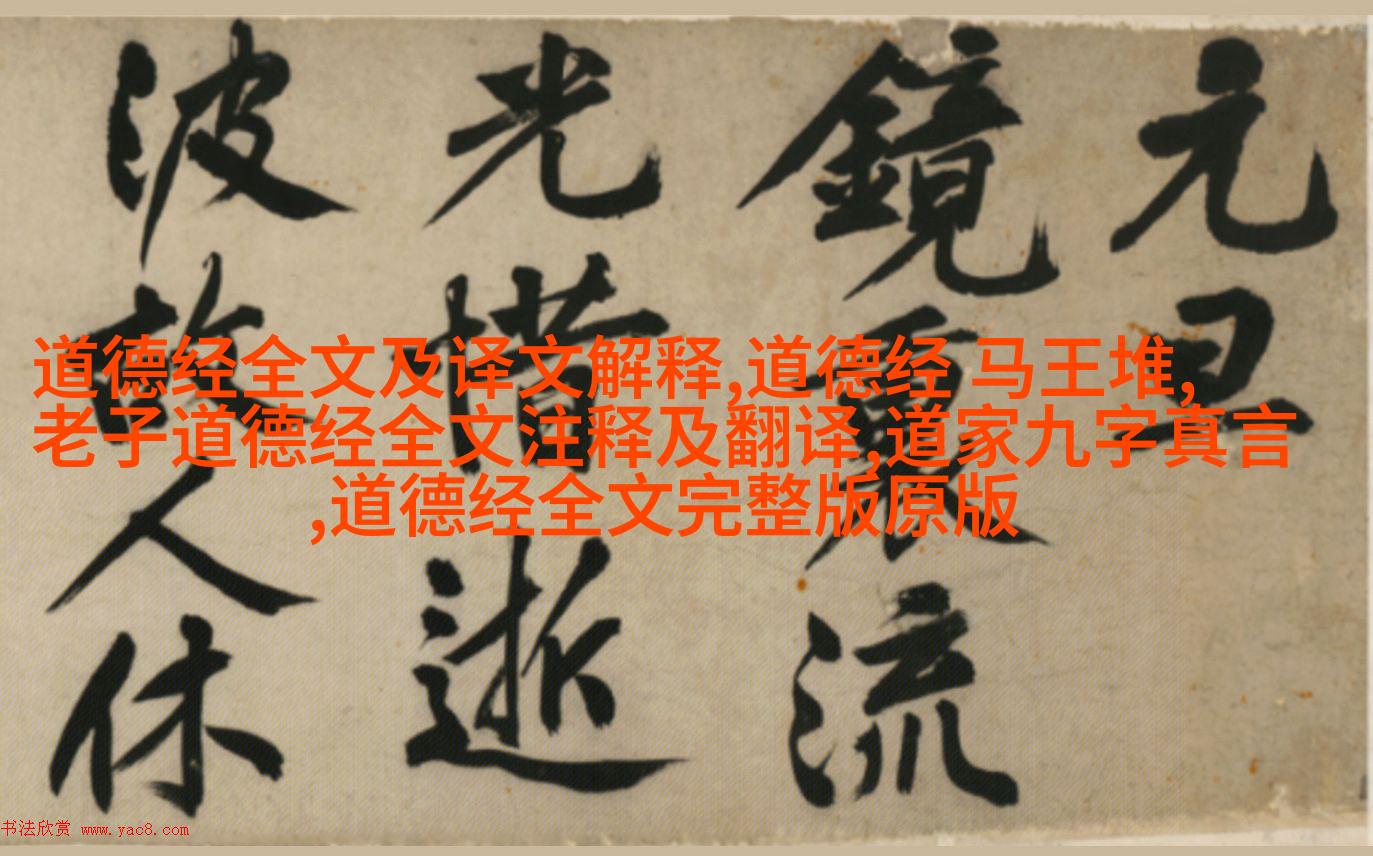 元
鏡裏流
光惜逝
波故人休
道德经全文及译文解释,道德经 马王堆,
老子道德经全文注释及翻译,道家九字真言
,道德经全文完整版原版
书法欣赏 www.yac8.com